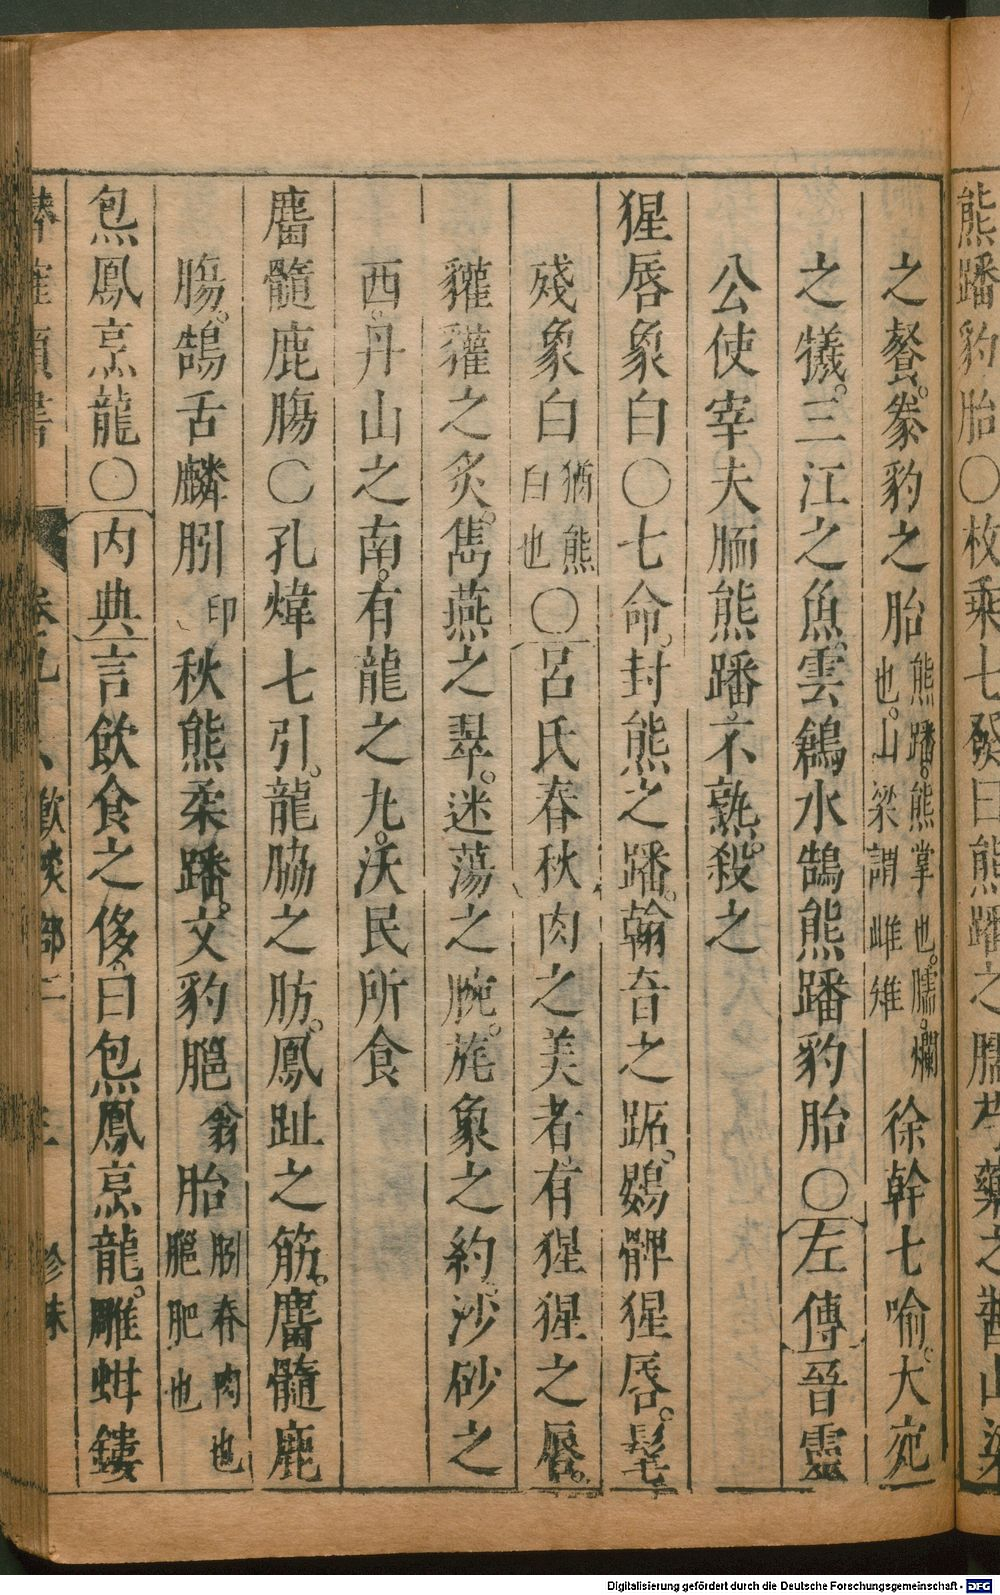 熊蹯豹胎〇枚乘七發曰熊蹯之臑芍藥之醬山梁
之餐。豢豹之胎熊蹯。熊掌也。臑。爛也。山梁謂雌雉徐幹七喻。大宛
之犠。三江之魚。雲鶬水鵠熊蹯豹胎〇左傳晉靈
公使宰夫胹熊蹯不熟。殺之
猩唇象白〇七命。封熊之蹯。翰音之跖。鷃髀猩唇。髦
殘象白猶熊白也〇呂氏春秋肉之美者有猩猩之唇。
貛貛之炙。雋燕之翠。迷蕩之腕。旄象之約。沙砂之
西。丹山之南。有龍之九。沃民所食
麕髓鹿膓〇孔煒七引。龍脇之肪。鳳趾之筋。麕髓鹿
膓。鵠舌麟䏖印秋熊柔蹯。文豹䐥翁胎䏖脊肉也䐥肥也
炰鳳烹龍〇内典言飲食之侈曰炰鳳烹龍。雕蚶鏤
卷 飲啖部二 三 珍味
Digitalisierung gefördert durch die Deutsche Forschungsgemeinschaft - DFG